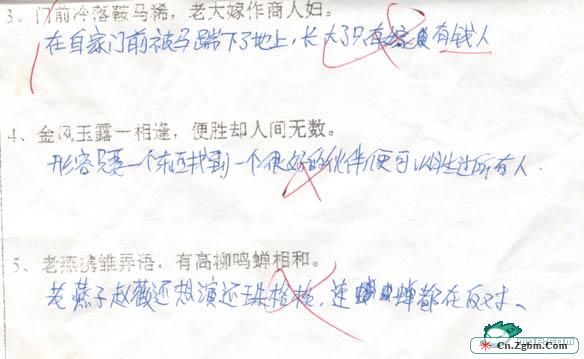 3、门前冷落鞍马稀，老大嫁作商人妇。
在自家门前被马踹下了地上，长大了只有嫁有钱人
4、金风玉露一相逢，便胜却人间无数。
形容只要一个东西找到一个很好的伙伴便可以胜过所有人.
5、老燕携雏弄语，有高柳鸣蝉相和。
老燕子赵薇还想演还珠格格，连蝉都在反对、
Cn.Zgbm.Com